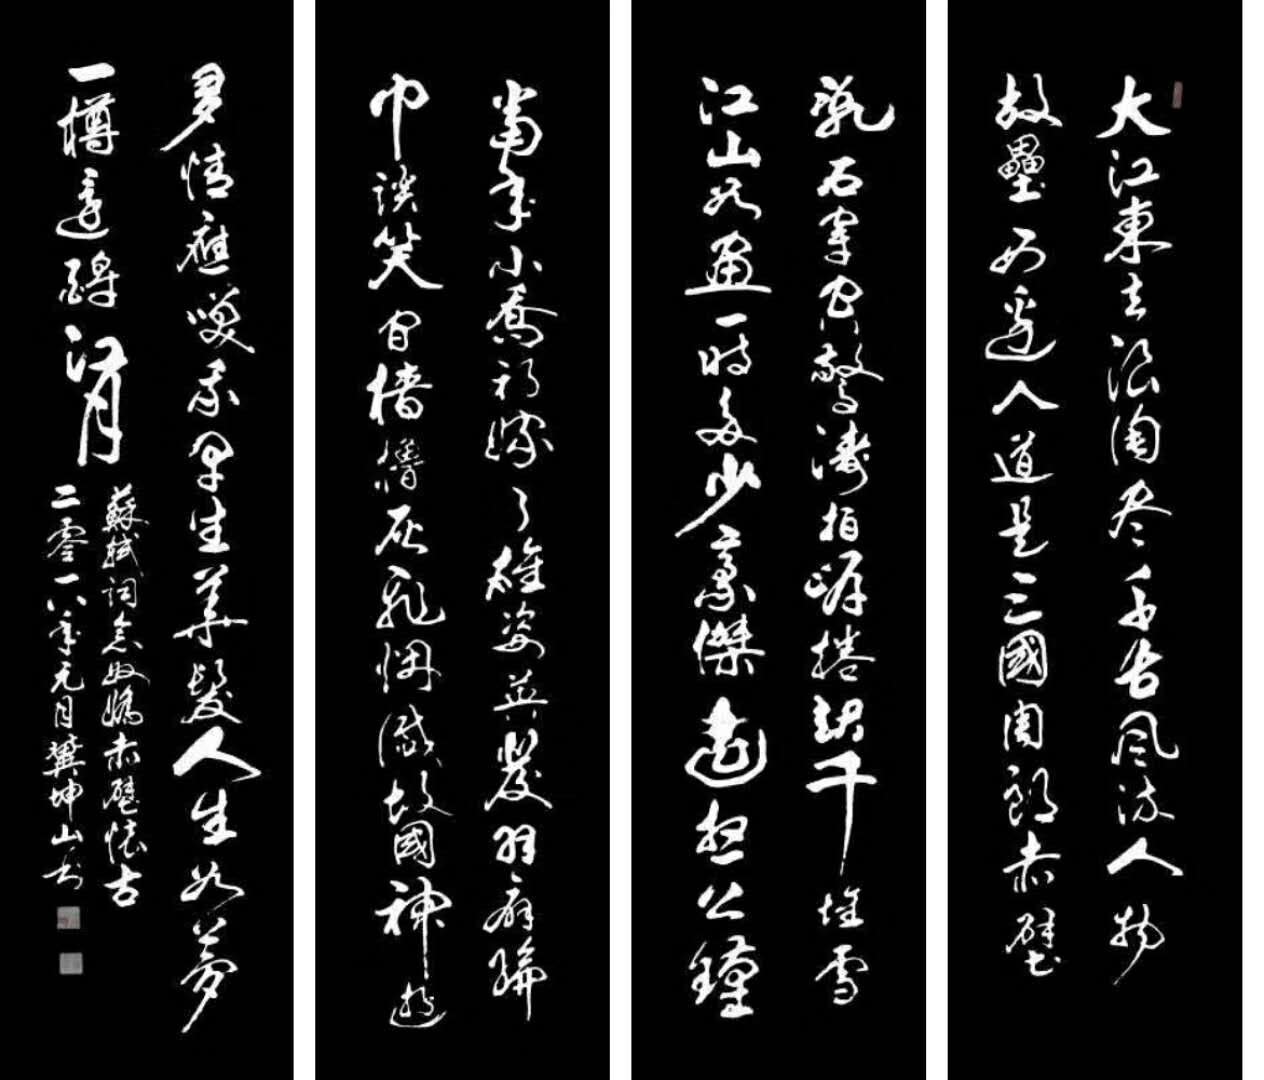 大江東去浪淘尽千古风流人物
故壘西邊人道是三國周郎赤壁
亂石穿空驚濤拍岸捲起千堆雪
江山如畫一時多少豪傑遙想公瑾
當年小喬初嫁了雄姿英發羽扇綸
巾談笑间檣櫓灰飛烟滅故國神遊
多情應咲我早生華髮人生如夢
一樽還酹江月
蘇軾詞念奴嬌赤壁懷古
二零一八年元月坤山書